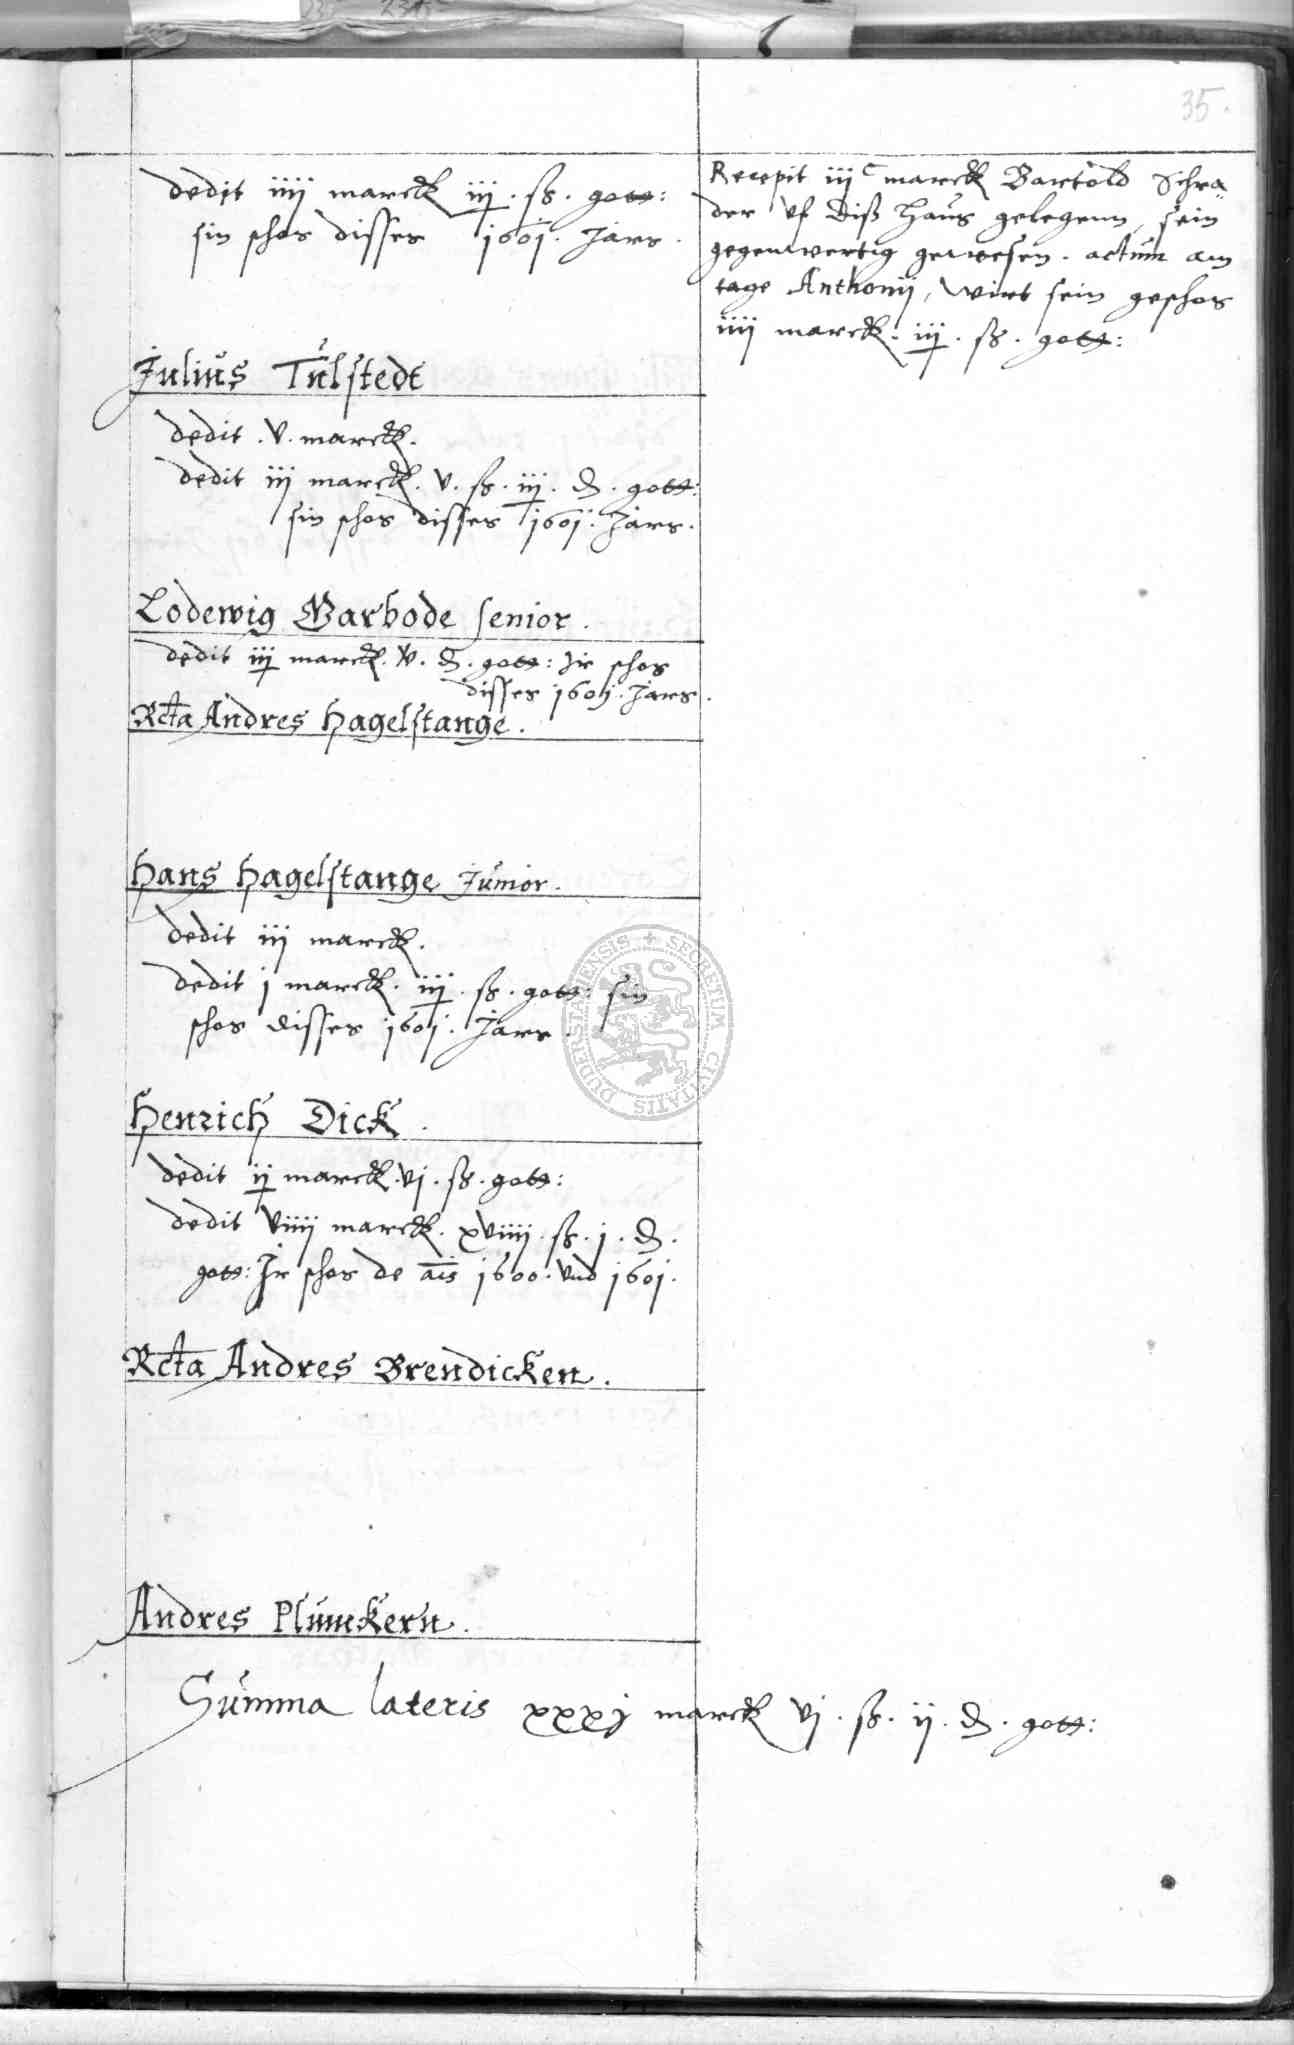 35.
dedit iiij marck iij . ß . gott:
sin schos disses 1601. Jars.
Recepit iij c marck Bartold Schra
der vf diß Haus gelegenn, sein
gegenwertig gewesen . actum am
tage Anthonij, wirt sein geschos
iiij marck . iij . ß . gott:
Julius Tulstedt
dedit . v . marck .
dedit iij marck . v . ß . iij . d . gott:
sin schos disses 1601. Jars.
Lodewig Barbode senior .
dedit iij marck . v . d . gott: Jr schos
disses 1601. Jars .
Rcta Andres Hagelstange .
Hans Hagelstange Junior .
dedit iij marck .
dedit j marck . iij . ß . gott: sin
schos disses 1601. Jars .
DUDERSTADIENSIS SECRETUM CIVITATIS
Henrich Dick .
dedit ij marck . vj . ß . gott:
dedit viiij marck . xviiij . ß . j . d .
gott: Jr schos de ais 1600. vnd 1601.
Rcta Andres Brendicken .
Andres Plumckern .
Summa lateris xxxj marck vj . ß . ij . d . gott: